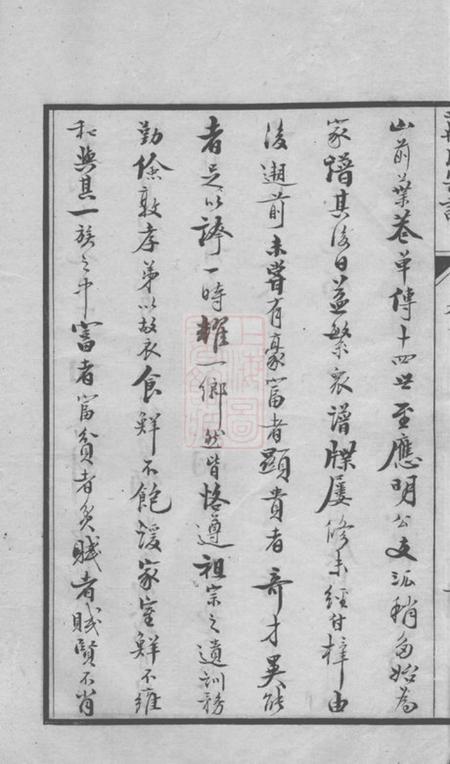 山前葉巷單傳十四世至應明公支派稍多始為
家譜其後日益繁衍譜牒屢修未經付梓由
後遡前未嘗有豪富者顯貴者奇才異能
者足以誇一時耀一鄉然皆恪遵祖宗之遺訓務
勤儉敦孝弟以故衣食鮮不飽煖家室鮮不雍
和與其一族之中富者富貧者貧賤者賤賢不肖